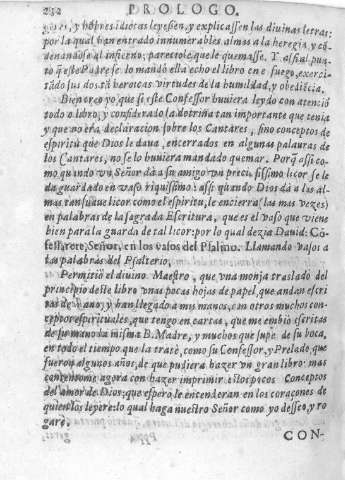 232 PROLOGO.
y hõbres idiotas leyessen, y explicassen las diuinas letras:
por la qual han entrado innumerables almas a la heregia, y cõ
denandose al infierno; pareciole que le quemasse. Y assi al pun
to q̃ este Padre se lo mandò ella echo el libro en el fuego, exerci
tado sus dos tã heroicas virtudes de la humildad, y obediẽcia.
Bien creo yo, que si este Confessor huuiera leydo con atẽciõ
todo el libro, y considerado la dotrina tan importante que tenia
y que no era declaracion sobre los Cantares, sino conceptos de
espiritu que Dios le daua, encerrados en algunas palauras de
los Cantares, no se lo huuiera mandado quemar. Porq̃ assi co-
mo quando vn Señor dà a su amigo vn precio sissimo licor se le
da guardado en vaso riquissimo: assi quando Dios dà a las al-
mas tan suaue licor como el espiritu, le encierra (las mas vezes)
en palabras de la sagrada Escritura, que es el vaso que viene
bien para la guarda de tal licor: por lo qual dezia Dauid: Cõ-
fessarete, Señor, en los vasos del Psalmo. Llamando vasos a
las palabras del Psalterio.
Permitiò el diuino Maestro, que vna monja traslado del
principio deste libro vnas pocas hojas de papel, que andan escri
tas de mano, y han llegado a mis manos, con otros muchos con-
ceptos espirituales, que tengo en cartas, que me embio escritas
de su mano la misma B. Madre, y muchos que supe de su boca,
en todo el tiempo que la tratè, como su Confessor, y Prelado, que
fueron algunos años, de que pudiera hazer vn gran libro: mas
contentome agora con hazer imprimir estos pocos Conceptos
del amor de Dios; que espero, le encenderan en los coraçones de
quien los leyere: lo qual haga nuestro Señor como yo desseo, y ro
garè.
CON-